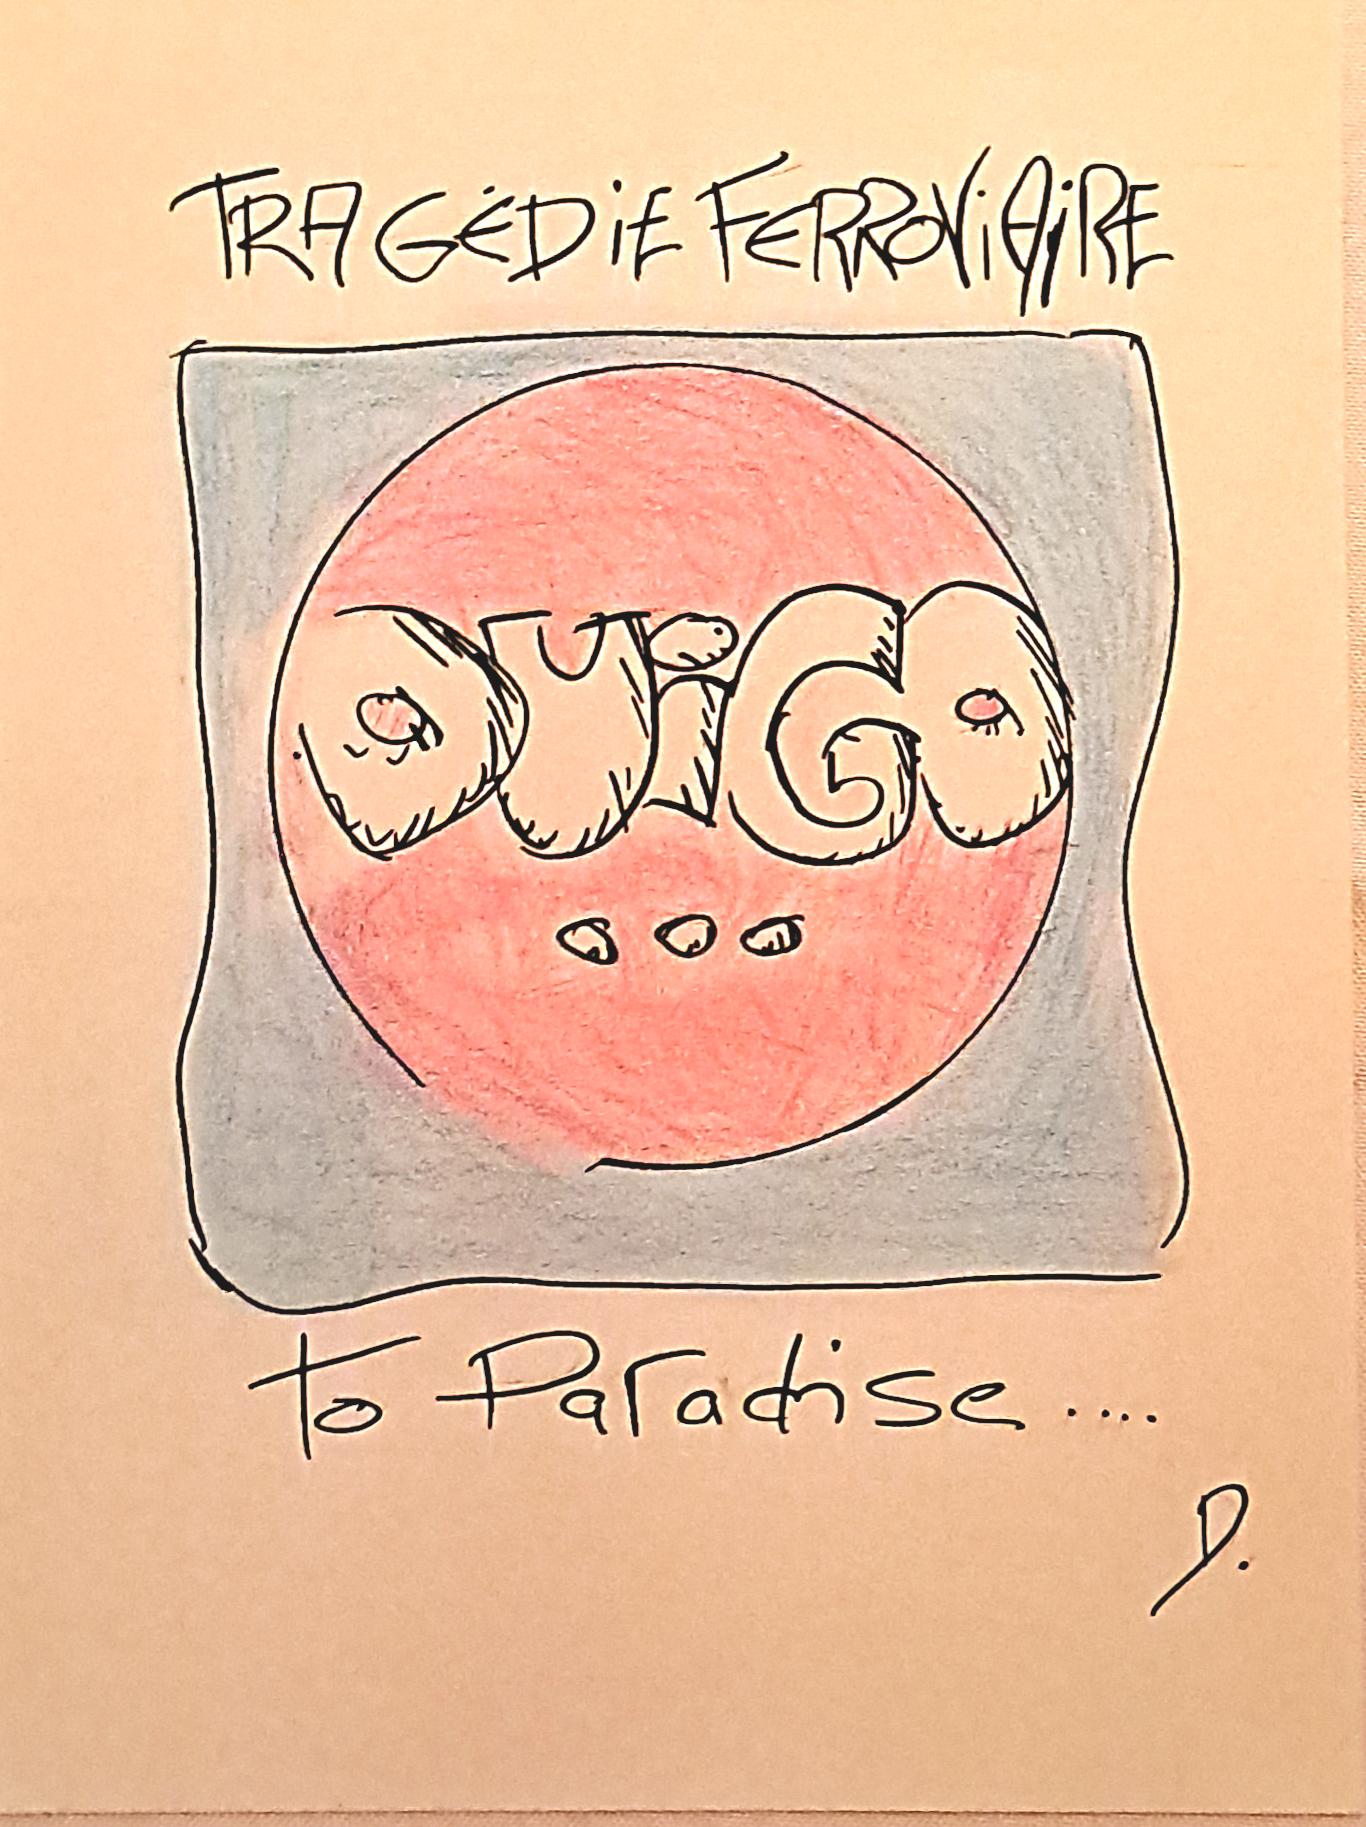 TRAGÉDIE FERROVIAIRE
OUiGO
...
To Paradise....
D.